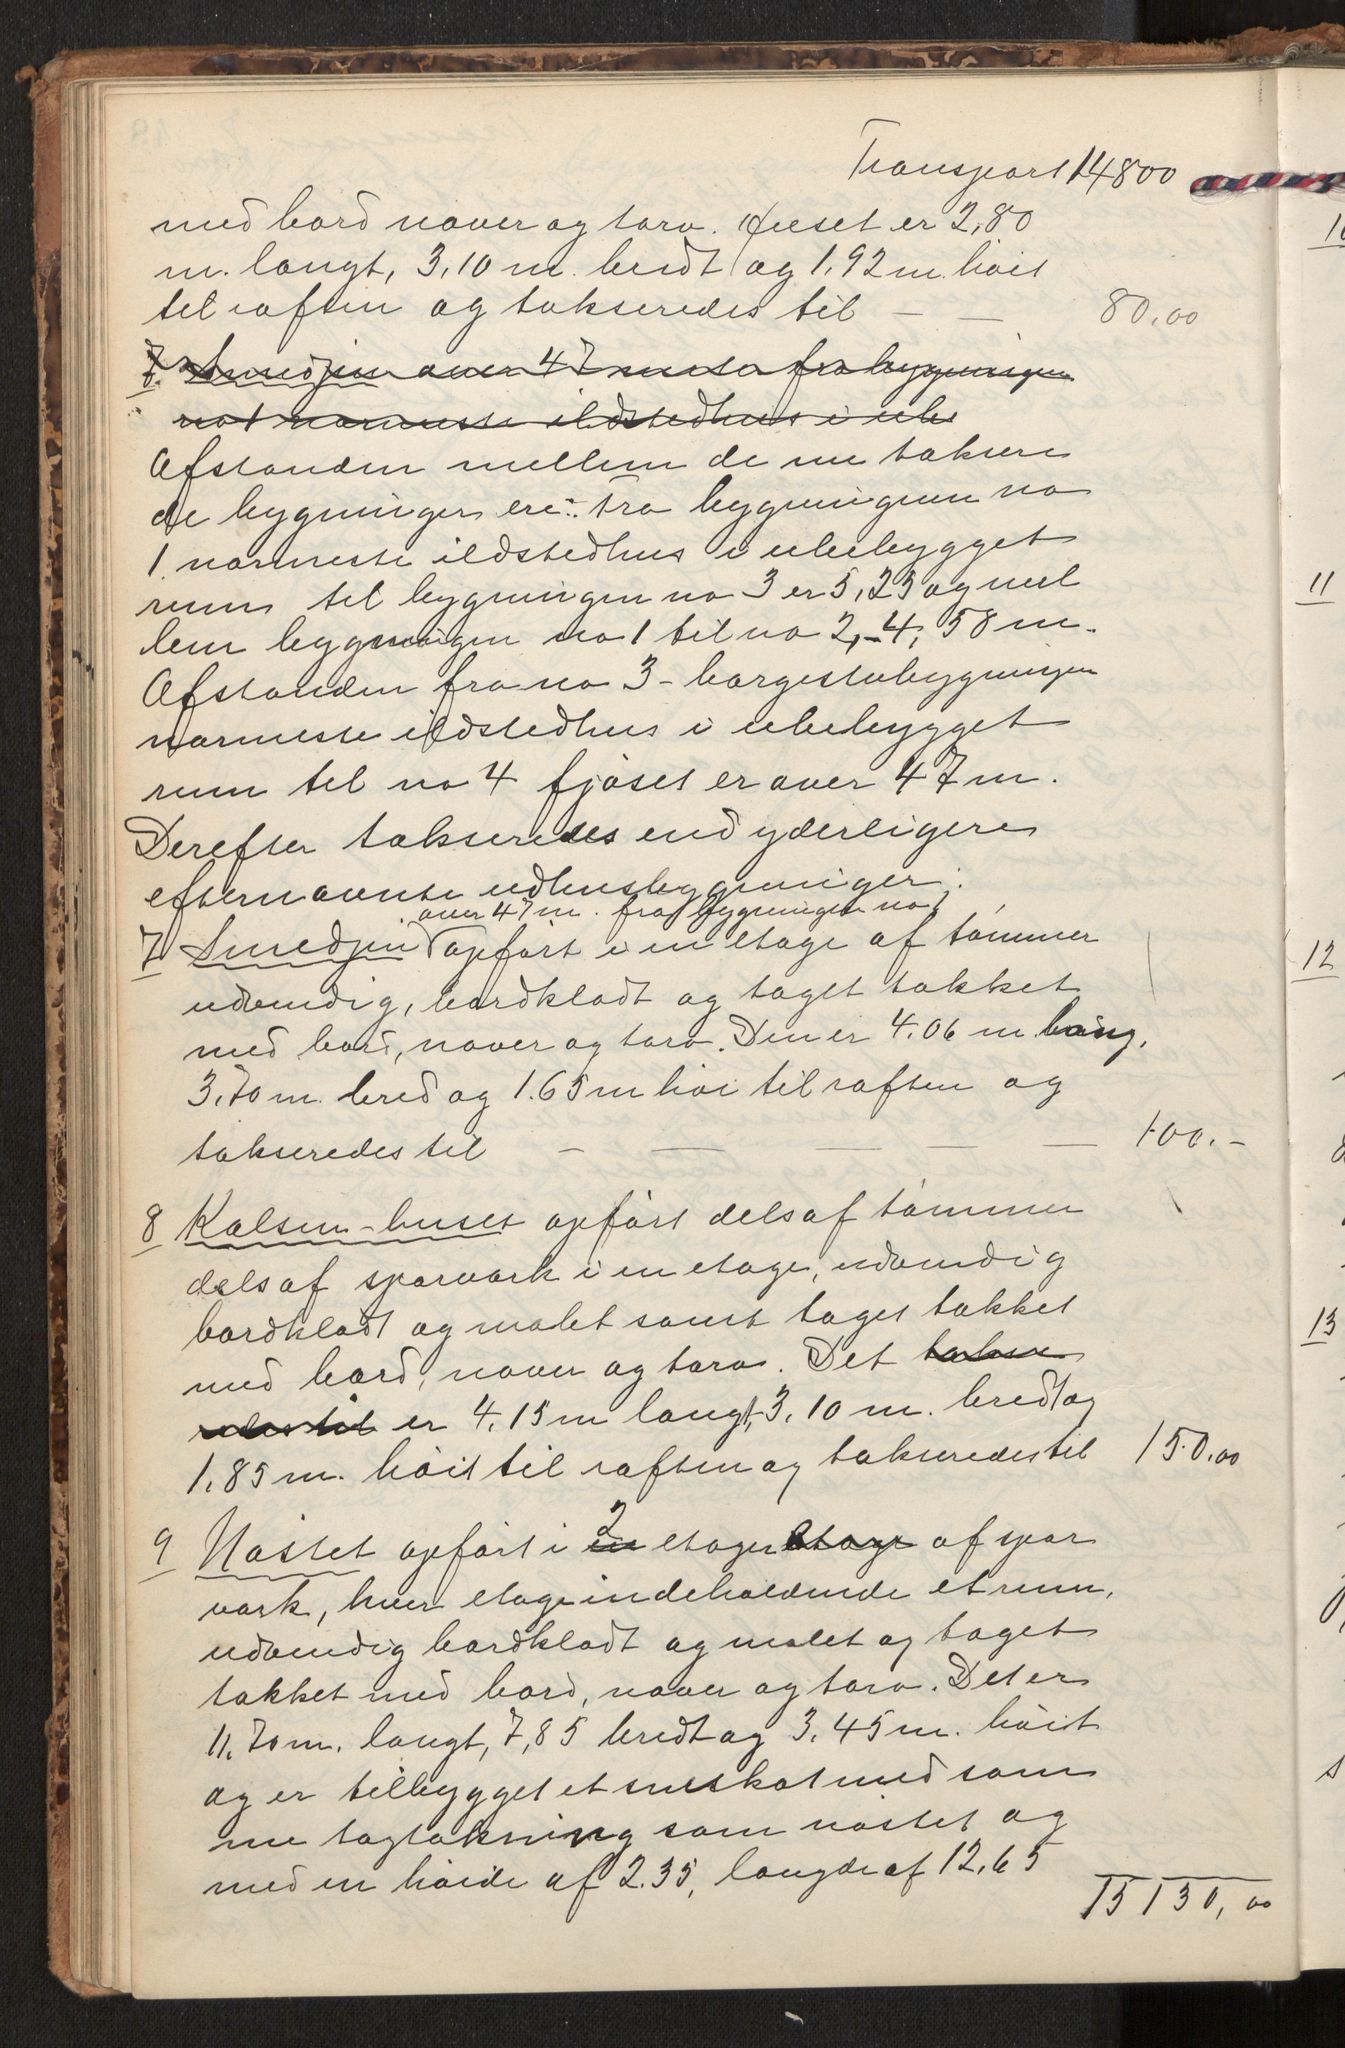 Transport 14800
med bord næver og torv. Huset er 2,80
m. langt, 3,10 m. bredt og 1,92 m. høit
til raften og takseredes til — — 80,00
7. Smedjen over 47 meter fra bygningen
no 1 nærmeste ildstedhus i ube
Afstanden mellem de nu taksere
de bygninger er:- Fra bygningen no
1 nærmeste ildstedhus i ubebygget
rum til bygningen no 3 er 5,25 og mel
lem bygningen no 1 til no 2, - 4,58 m.
Afstanden fra no 3 - borgestubygningen
nærmeste ildstedhus i ubebygget
rum til no 4 fjøset er over 47 m.
Derefter takseredes end yderligere
efternævnte udhusbygninger:
over 47 m. fra bygningen no 1
7 Smedjen opført i en etage af tømmer
udvendig, bordklædt og taget tækket
med bord, næver og torv. Den er 4.06 m lang,
3,70 m. bred og 1.65 m høi til raften og
takseredes til — — — — — 100.-
8 Kolsem-huset opført dels af tømmer
dels af sparværk i en etage, udvendig
bordklædt og malet samt taget tækket
med bord, næver og torv. Det takse
redes til er 4,15 m langt, 3,10 m. bredt og
1,85 m. høit til raften og takseredes til 150,00
9 Nøstet opført i en 2 etager etage af spar
værk, hver etage indeholdende et rum,
udvendig bordklædt og malet og taget
tækket med bord, næver og torv. Det er
11,70 m. langt, 7,85 bredt og 3.45 m. høit
og er tilbygget et sneskot med sam
me tagtækning som nøstet og
med en høide af 2.35, længde af 12,65
15130,00
10
11
12
13